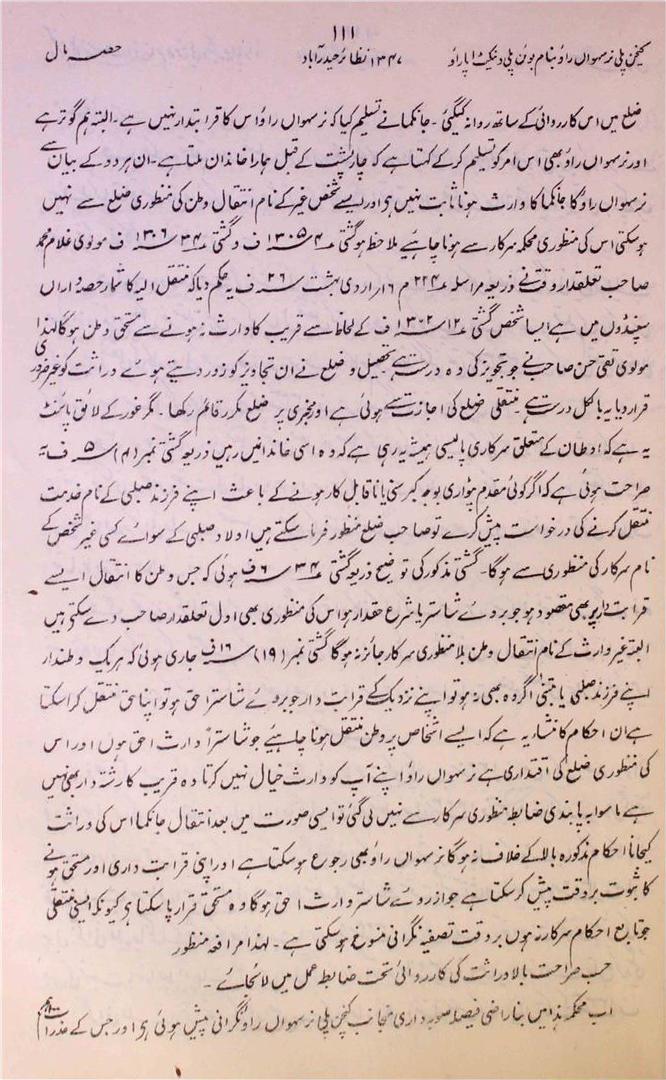 ۱۱۱
کنچن پلی نرسہواں راؤ بنام بوئن پلی ونکٹ اپا راؤ ۱۳۴۷ نظائر حیدرآباد حصہ مال
ضلع میں اس کارروائی کے ساتھ روانہ کیگئی۔ جانکما نے تسلیم کیا کہ نرسہواں راؤ اس کا قرابتدار نہیں ہے۔ البتہ ہم گوتر ہے
اور نرسہواں راؤ بھی اس امر کو تسلیم کرکے کہتا ہے کہ چار پشت کے قبل ہمارا خاندان ملتا ہے۔ ان ہر دو کے بیان سے
نرسہواں راؤ کا جانکما کا وارث ہونا ثابت نہیں ہوا اور ایسے شخص غیر کے نام انتقال وطن کی منظوری ضلع سے نہیں
ہوسکتی اس کی منظوری محکمہ سرکار سے ہونا چاہئیے ملاحظہ ہو گشتی ۴ ۱۳۰۵ ف و گشتی ۳۴ ۱۳۰۶ ف مولوی غلام محمد
صاحب تعلقدار وقت نے ذریعہ مراسلہ ۲۲۴ م ۱۶ اردی بہشت ۲۶ ف یہ حکم دیا کہ منتقل الیہ کا شمار حصہ داران
سپنڈوں میں ہے ایسا شخص گشتی ۱۲ ۱۳۰۲ ف کے لحاظ سے قریب کا وارث نہ ہونے سے مستحق وطن ہوگا لہذا
مولوی تقی حسن صاحب نے جو تجویز کی وہ درست ہے تحصیل و ضلع نے ان تجاویز کو زور دیتے ہوئے وراثت کو غیر ضروری
قرار دیا یہ بالکل درست ہے۔ منتقلی ضلع کی اجازت سے ہوئی ہے اور مخبری پر ضلع مکرر قائم رکھا۔ مگر غور کے لائق پائنٹ
یہ ہے کہ اوطان کے متعلق سرکاری پالیسی ہمیشہ یہ رہی ہے کہ وہ اسی خاندان میں رہیں ذریعہ گشتی نمبر (۴) ۵ ف یہ
صراحت ہوئی ہے کہ اگر کوئی مقدم پٹواری بوجہ کبر سنی یا ناقابل کار ہونے کے باعث اپنے فرزند صلبی کے نام خدمت
منتقل کرنے کی درخواست پیش کرے تو صاحب ضلع منظور فرما سکتے ہیں اولاد صلبی کے سوائے کسی غیر شخص کے
نام سرکار کی منظوری سے ہوگا۔ گشتی مذکور کی توضیح ذریعہ گشتی ۳۴ ۶ ف ہوئی کہ جس وطن کا انتقال ایسے
قرابت دار پر بھی مقصود ہو جو بروئے شاستر یا شرع حقدار ہو اس کی منظوری بھی اول تعلقدار صاحب دے سکتی ہیں
البتہ غیر وارث کے نام انتقال وطن بلا منظوری سرکار جائز نہ ہوگا گشتی نمبر (۱۹) ۱۶ ف جاری ہوئی کہ ہر یک وطندار
اپنے فرزند صلبی یا متبنیٰ اگر وہ بھی نہ ہو تو اپنے نزدیک کے قرابت دار جو بروئے شاستر احق ہو تو اپنا حق منتقل کراسکتا
ہے ان احکام کا منشاء یہ ہے کہ ایسے اشخاص پر وطن منتقل ہونا چاہئیے جو شاستراً وارث احق ہوں اور اس
کی منظوری ضلع کی اقتداری ہے نرسہواں راؤ اپنے آپ کو وارث خیال نہیں کرتا وہ قریب کا رشتہ دار بھی نہیں
ہے ماسوا بہ پابندی ضابطہ منظوری سرکار سے نہیں لی گئی تو ایسی صورت میں بعد انتقال جانکما اس کی وراثت
کیجانا احکام مذکورہ بالا کے خلاف نہ ہوگا نرسہواں راؤ بھی رجوع ہوسکتا ہے اور اپنی قرابت داری اور مستحق ہونے
کا ثبوت بر وقت پیش کرسکتا ہے جو ازروئے شاستر وارث احق ہوگا وہ مستحق قرار پاسکتا ہی کیونکہ ایسی منتقلی
جو تابع احکام سرکار نہ ہوں بر وقت تصفیہ نگرانی منسوخ ہوسکتی ہے۔ لہذا مرافعہ منظور
حسب صراحت بالا وراثت کی کارروائی تحت ضابطہ عمل میں لائجائے۔
اب محکمہ ہذا میں بناراضی فیصلہ صوبہ داری منجانب کنچن پلی نرسہواں راؤ نگرانی پیش ہوئی ہی اور جس کے عذرات